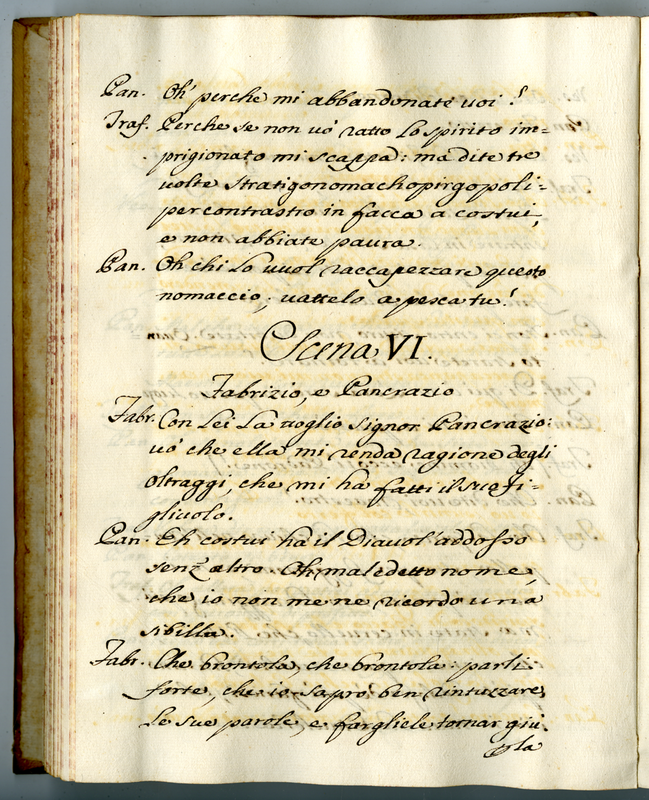 Pan. Oh' perche mi abbandonate voi?
Traf. Perche se non vò ratto lo spirito im=
prigionato mi scappa: ma dite tre
volte Stratigonomachopirgopoli=
percontrastro in facca a costui,
e non abbiate paura.
Pan. Oh chi lo vuol raccapezzare questo
nomaccio; vattelo a pesca tu!
Scena VI.
Fabrizio, e Pancrazio
Fabr. Con Lei La voglio Signor Pancrazio:
vò che ella mi renda ragione degli
oltraggi, che mi ha fatti il suo Fi=
gliuolo.
Pan. Eh costui ha il Diavol' addosso
senz' altro. Oh maledetto nome,
che io non me ne ricordo una
sibilla.
Fabr. Che brontola, che brontola: parli
forte, che io saprò ben rintuzzare
le sue parole, e fargliele tornar giù
pla